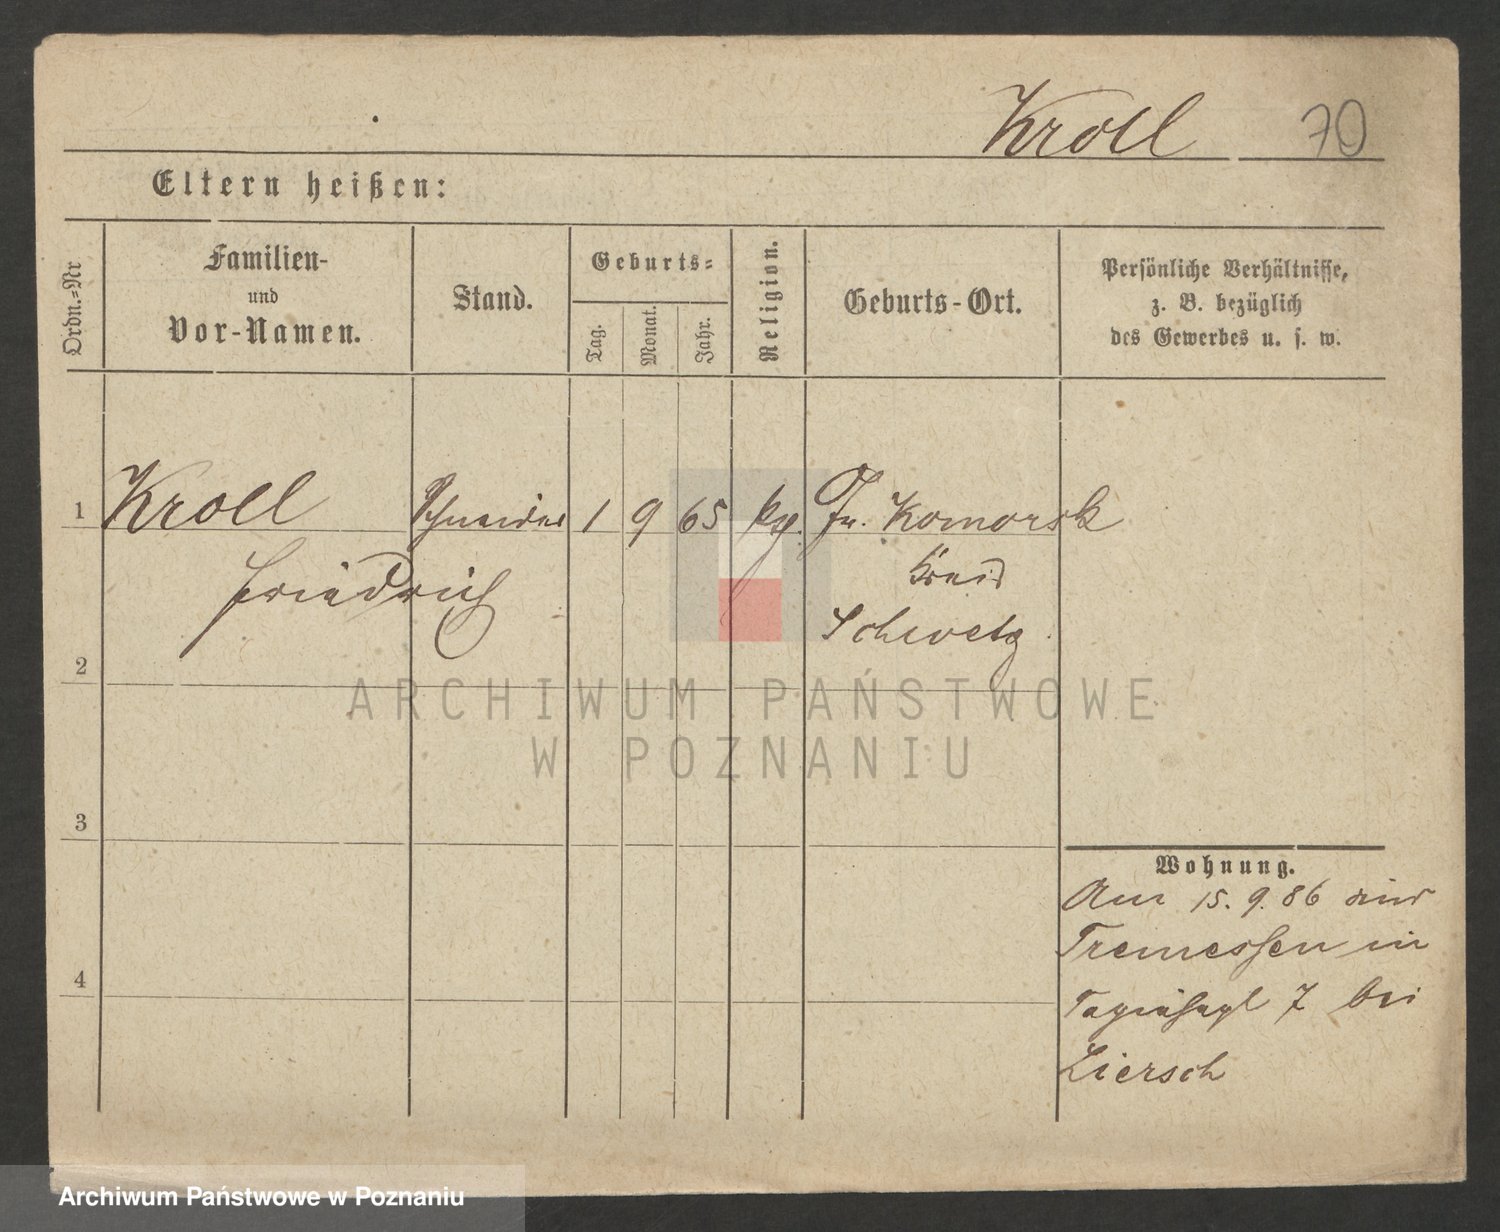 Kroll 70
Eltern heißen:
Ordn.=Nr
Familien-
und
Vor-Namen.
Stand.
Geburts=
Tag.
Monat.
Jahr.
Religion.
Geburts-Ort.
Persönliche Verhältnisse,
z. B. bezüglich
des Gewerbes u. s. w.
1 Kroll Schneider 1 9 65 Komorsk
Friedrich Kreis
Schwetz
2
3
4
Wohnung.
Am 15. 9. 86 aus
Tremessen in
7 bei
Liersch
ARCHIWUM PAŃSTWOWE
W POZNANIU
Archiwum Państwowe w Poznaniu